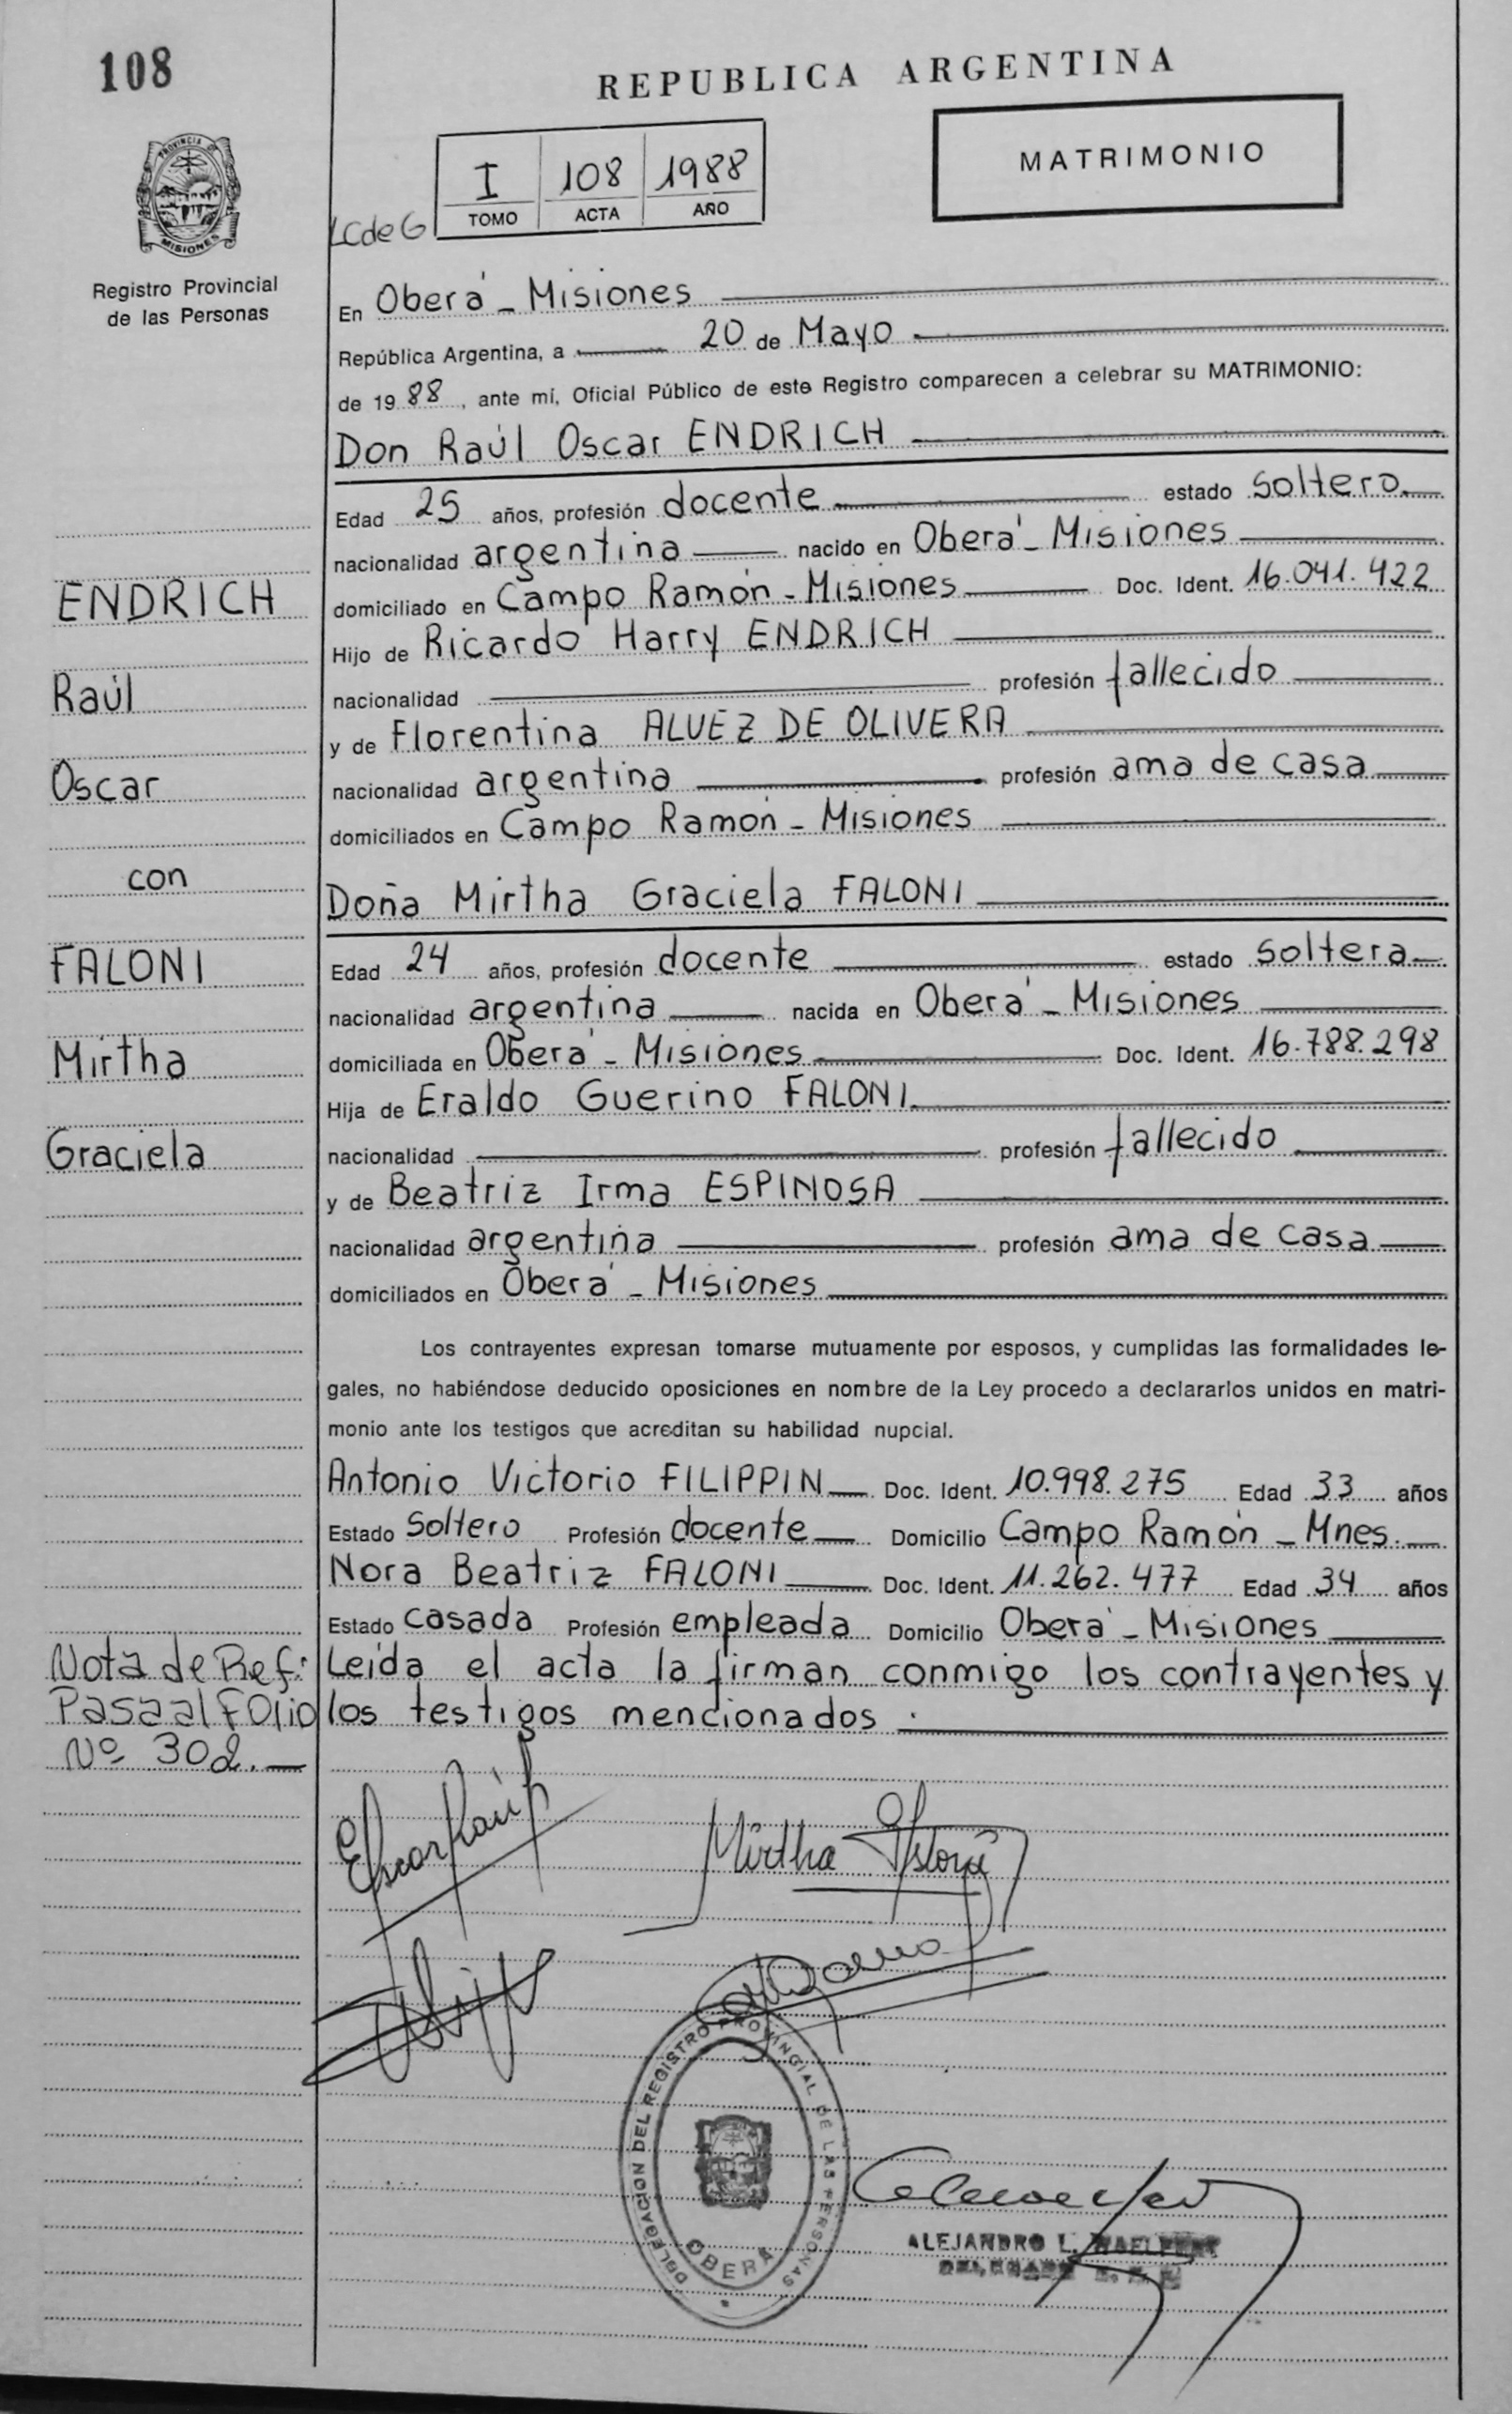 108
REPUBLICA ARGENTINA
PROVINCIA DE
MISIONES
Registro Provincial
de las Personas
I 108 1988
TOMO ACTA AÑO
MATRIMONIO
LCdeG
En Oberá - Misiones
República Argentina, a 20 de Mayo
de 1988, ante mí, Oficial Público de este Registro comparecen a celebrar su MATRIMONIO:
Don Raúl Oscar ENDRICH
Edad 25 años, profesión docente estado soltero
nacionalidad argentina nacido en Oberá - Misiones
domiciliado en Campo Ramón - Misiones Doc. Ident. 16.041.422
Hijo de Ricardo Harry ENDRICH
nacionalidad profesión fallecido
y de Florentina ALVEZ DE OLIVERA
nacionalidad argentina profesión ama de casa
domiciliados en Campo Ramón - Misiones
Doña Mirtha Graciela FALONI
Edad 24 años, profesión docente estado soltera
nacionalidad argentina nacida en Oberá - Misiones
domiciliada en Oberá - Misiones Doc. Ident. 16.788.298
Hija de Eraldo Guerino FALONI
nacionalidad profesión fallecido
y de Beatriz Irma ESPINOSA
nacionalidad argentina profesión ama de casa
domiciliados en Oberá - Misiones
Los contrayentes expresan tomarse mutuamente por esposos, y cumplidas las formalidades le-
gales, no habiéndose deducido oposiciones en nombre de la Ley procedo a declararlos unidos en matri-
monio ante los testigos que acreditan su habilidad nupcial.
Antonio Victorio FILIPPIN Doc. Ident. 10.998.275 Edad 33 años
Estado Soltero Profesión docente Domicilio Campo Ramón - Mnes.
Nora Beatriz FALONI Doc. Ident. 11.262.477 Edad 34 años
Estado casada Profesión empleada Domicilio Oberá - Misiones
Leída el acta la firman conmigo los contrayentes y
los testigos mencionados.
ENDRICH
Raúl
Oscar
con
FALONI
Mirtha
Graciela
Nota de Ref:
Pasa al Folio
Nº 302.
Mirtha
DELEGACION DEL REGISTRO PROVINCIAL DE LAS PERSONAS
OBERA
ALEJANDRO L.